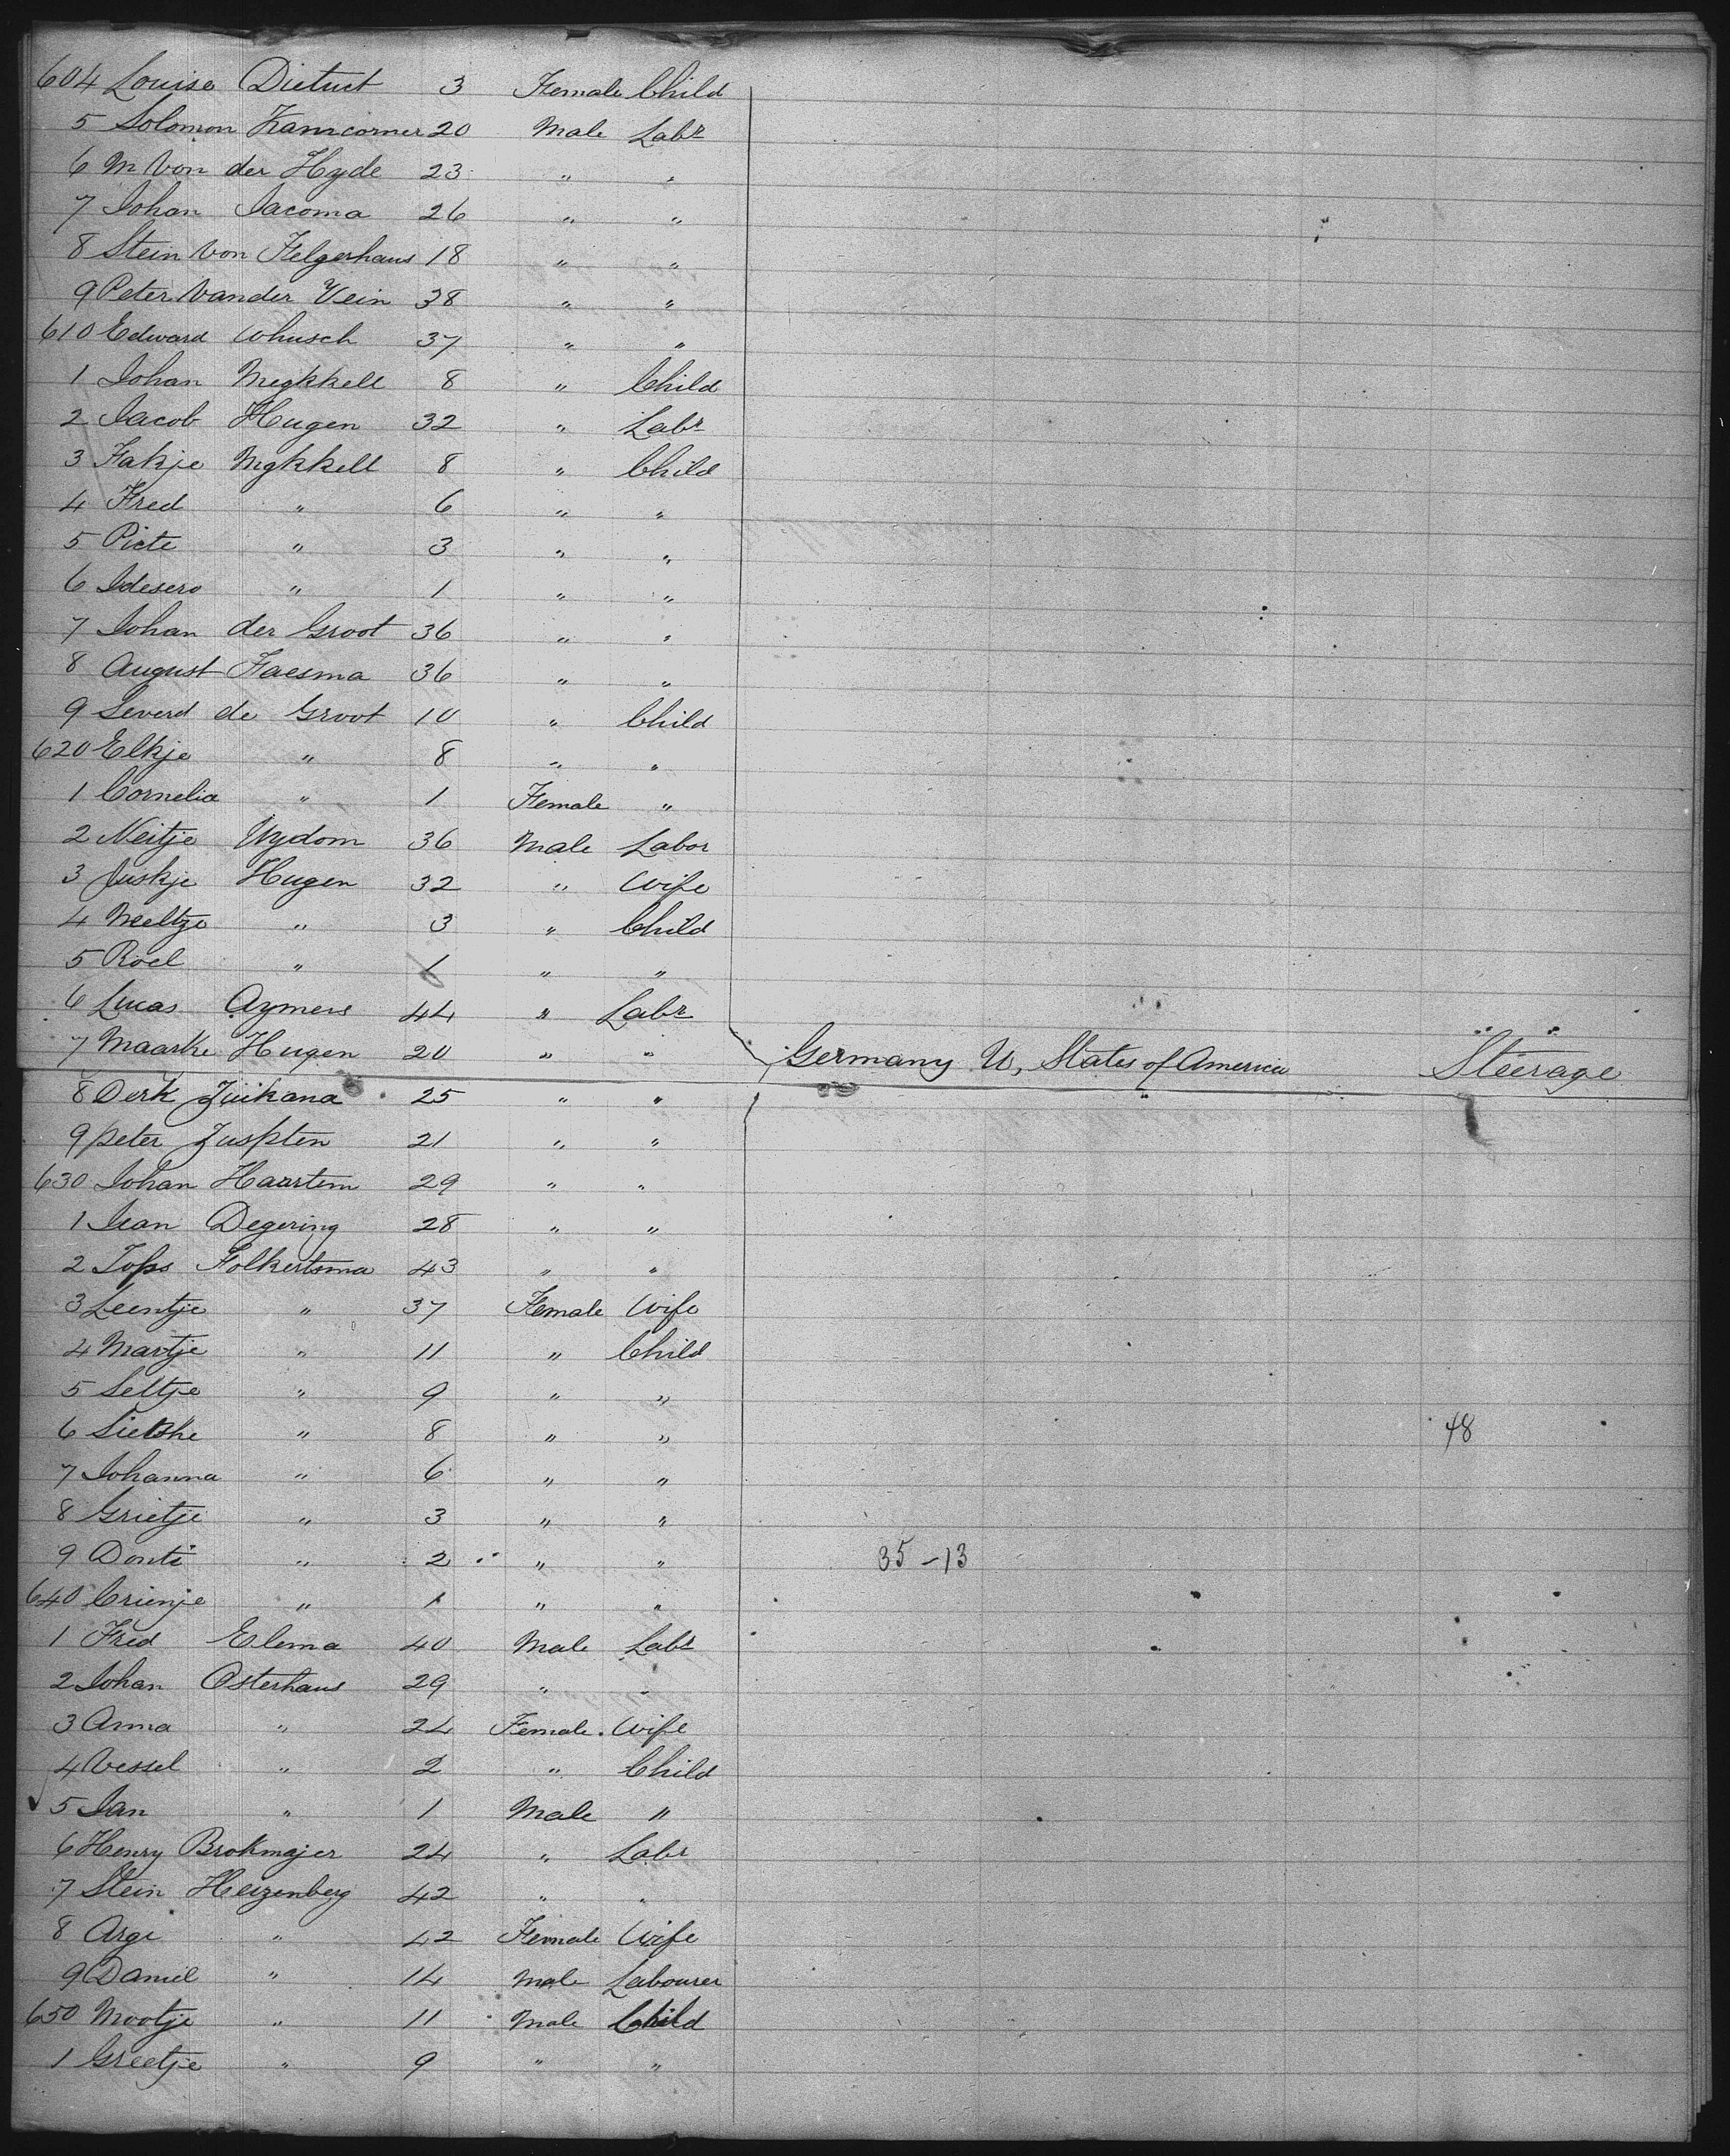 604 Louise Dietrict 3 Female Child
5 Solomon Kamcorner 20 Male Labr
6 M Von der Hyde 23 " "
7 Johan Jacoma 26 " "
8 Stein Von Felgerhaus 18 " "
9 Peter Vander Vein 38 " "
610 Edward Whusch 37 " "
1 Johan Megkkell 8 " Child
2 Jacob Hugen 32 " Labr
3 Fakje Mgkkell 8 " Child
4 Fred " 6 " "
5 Piete " 3 " "
6 Idesero " 1 " "
7 Johan der Groot 36 " "
8 August Faesma 36 " "
9 Severd de Groot 10 " Child
620 Elkje " 8 " "
1 Cornelia " 1 Female "
2 Neitje Wydom 36 Male Labor
3 Juskje Hugen 32 " Wife
4 Meltze " 3 " Child
5 Roel " 1 " "
6 Lucas Aymers 44 " Labr
7 Maarke Hugen 20 " " Germany U, States of America Steerage
8 Derk Zuikana 25 " "
9 peter Zuspten 21 " "
630 Johan Haartem 29 " "
1 Jean Degering 28 " "
2 Tops Folkertsma 43 " "
3 Leentje " 37 Female Wife
4 Martje " 11 " Child
5 Seltje " 9 " "
6 Sietske " 8 " " 48
7 Johanna " 6 " "
8 Grietje " 3 " "
9 Donti " 2 " " 35-13
640 Crienje " 1 " "
1 Fred Elema 40 Male Labr
2 Johan Osterhaus 29 " "
3 Anna " 24 Female Wife
4 Vessel " 2 " Child
5 Jan " 1 Male "
6 Henry Brokmajer 24 " Labr
7 Stein Heizenberg 42 " "
8 Argi " 42 Female Wife
9 Daniel " 14 Male Labourer
650 Mootje " 11 Male Child
1 Greetje " 9 " "